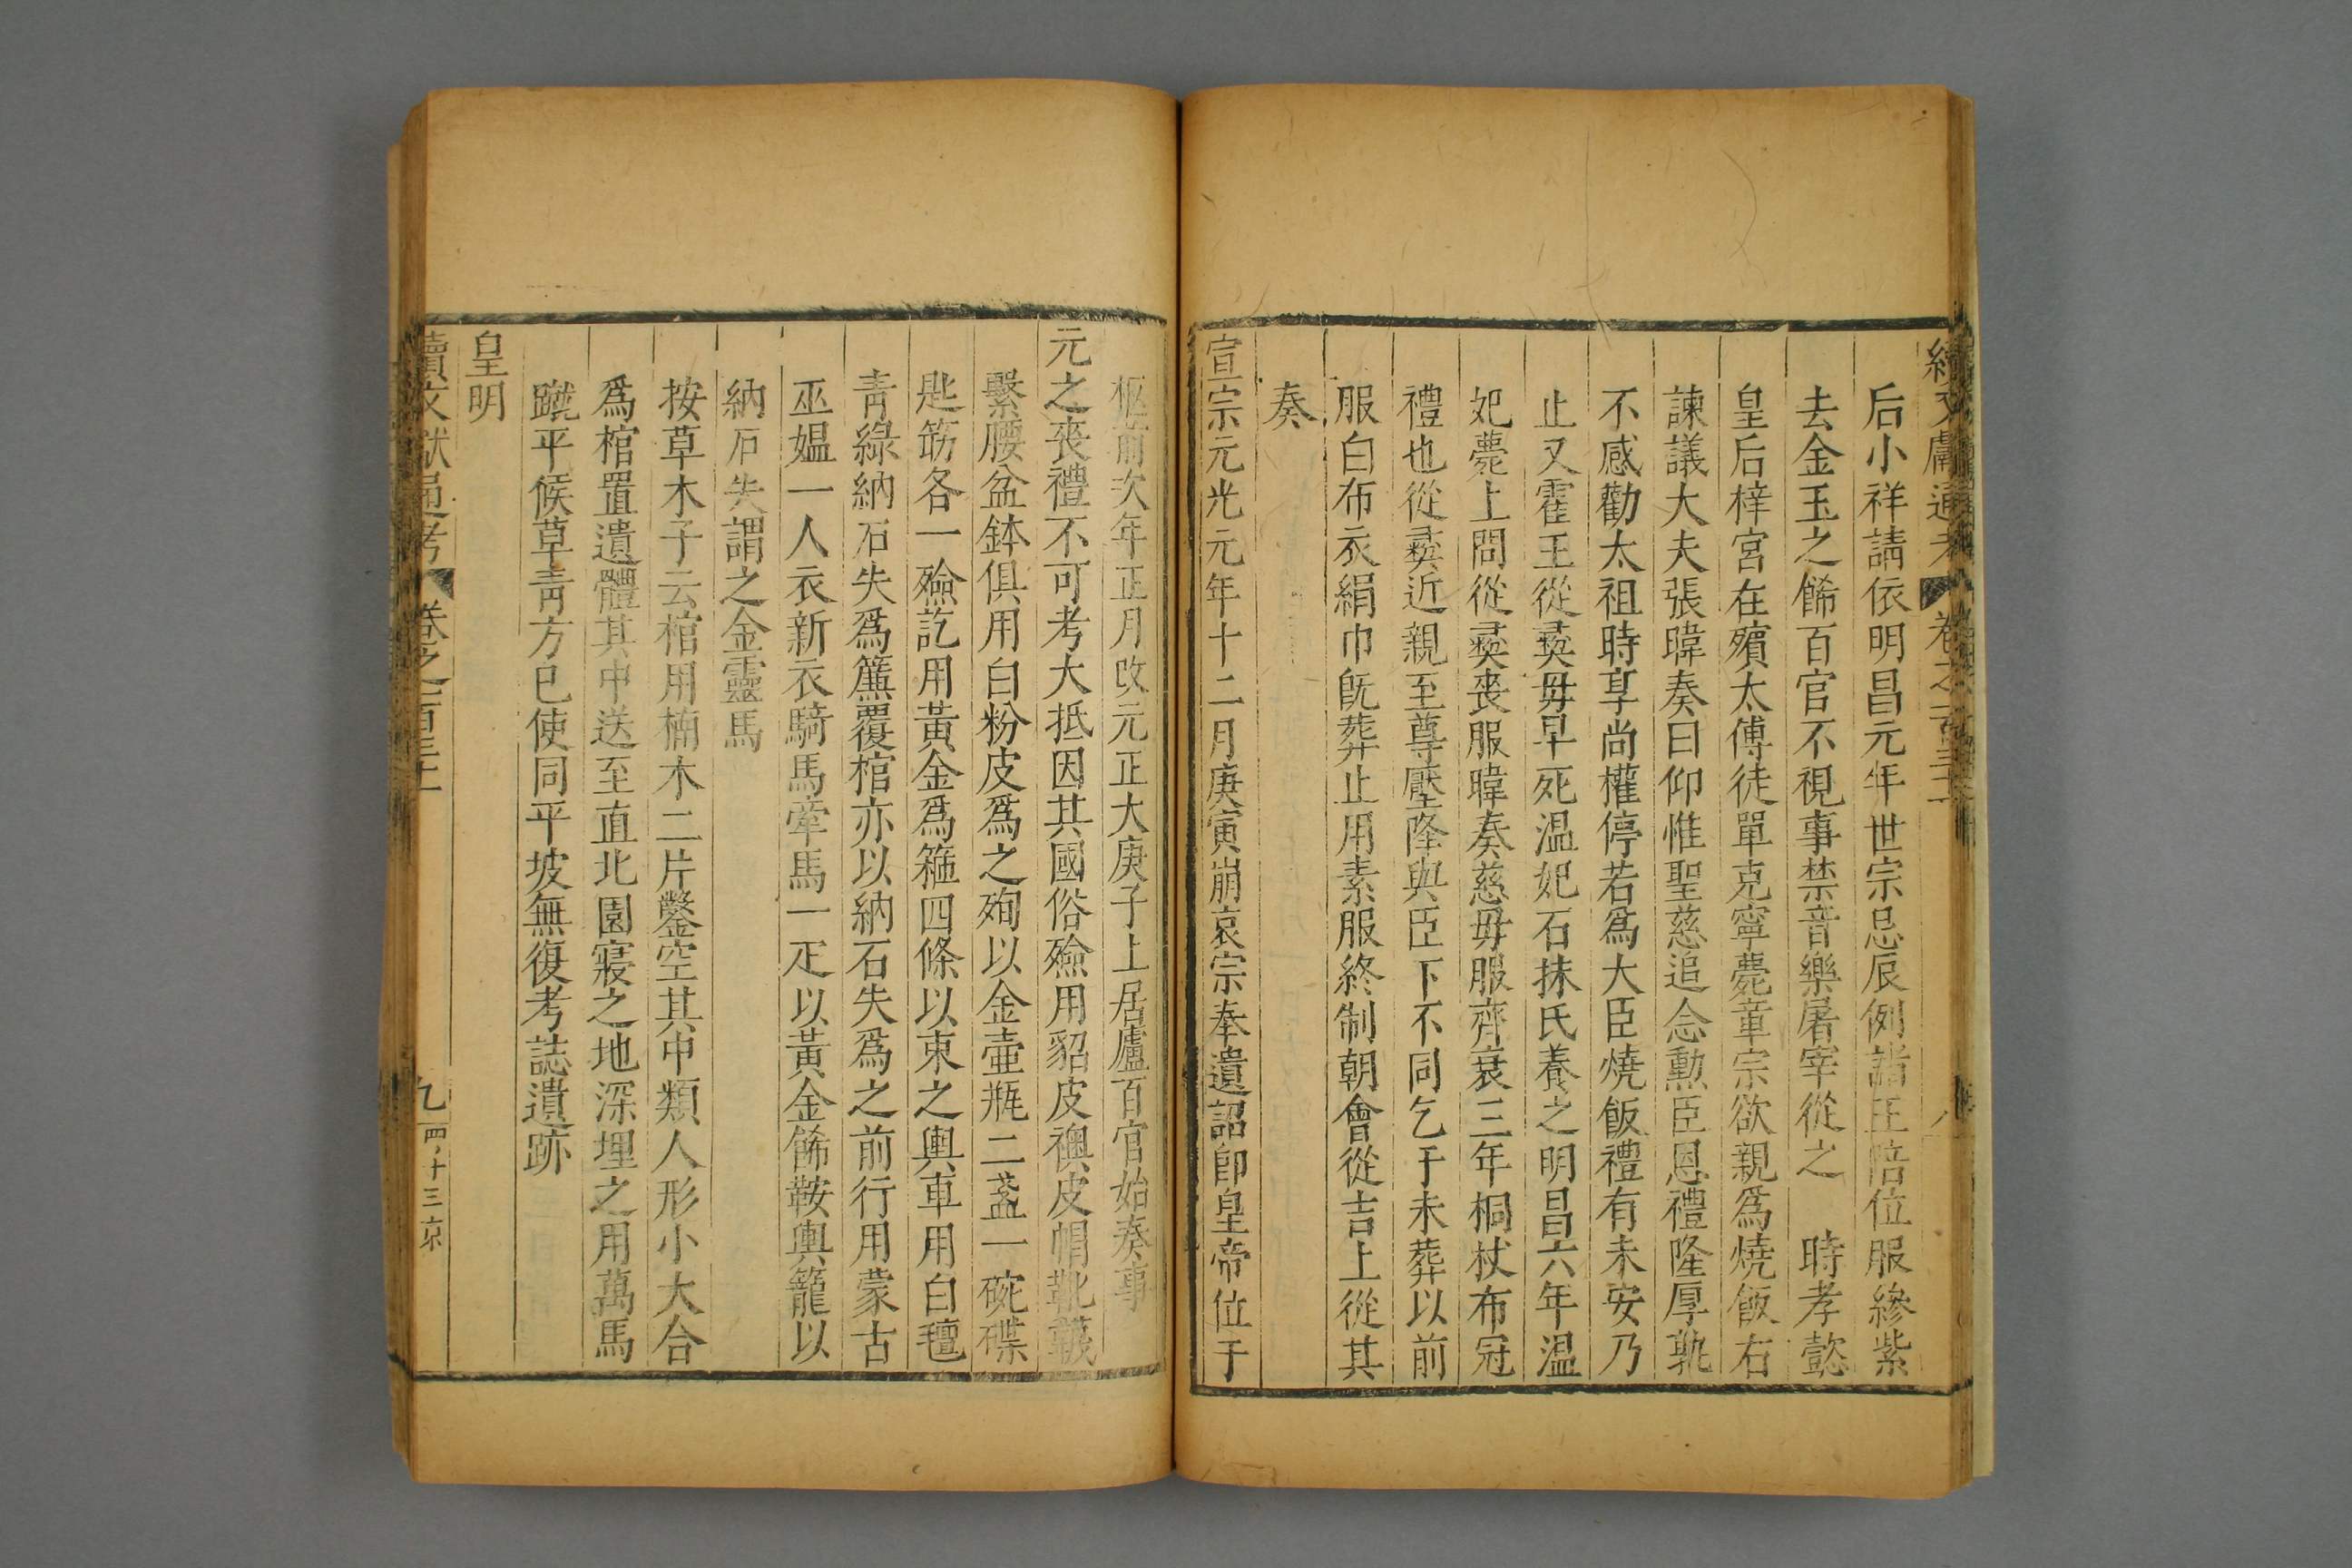 續文獻通考 卷之一百三十 八
后小祥請依明昌元年世宗忌辰例諸王陪位服縿紫
去金玉之餙百官不視事禁音樂屠宰從之 時孝懿
皇后梓宮在殯太傅徒單克寧薨章宗欲親爲燒飯右
諫議大夫張暐奏曰仰惟聖慈追念勳臣恩禮隆厚孰
不感勸太祖時享尚權停若爲大臣燒飯禮有未安乃
止又霍王從彛母早死温妃石抹氏養之明昌六年温
妃薨上問從彛喪服暐奏慈母服齊衰三年桐杖布冠
禮也從彛近親至尊壓降與臣下不同乞于未葬以前
服白布衣絹巾旣葬止用素服終制朝會從吉上從其
奏
宣宗元光元年十二月庚寅崩哀宗奉遺詔卽皇帝位于
柩前次年正月改元正大庚子上居廬百官始奏事
元之喪禮不可考大抵因其國俗殮用貂皮襖皮帽靴韈
繫腰盆鉢俱用白粉皮爲之殉以金壺瓶二盞一碗碟
匙筯各一殮訖用黃金爲箍四條以束之輿車用白氊
靑綠納石失爲簾覆棺亦以納石失爲之前行用蒙古
巫媼一人衣新衣騎馬牽馬一疋以黃金餙鞍轡籠以
納石失謂之金靈馬
按草木子云棺用楠木二片鑿空其中類人形小大合
爲棺置遺體其中送至直北園寢之地深埋之用萬馬
蹴平候草靑方已使同平坡無復考誌遺跡
皇明
續文獻通考 卷之一百三十 九 四十三 京